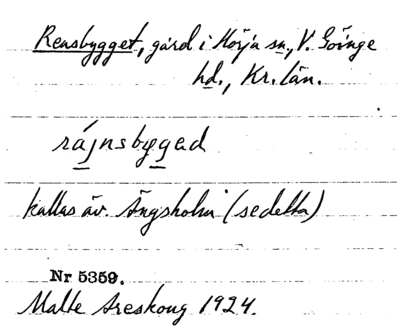 Rensbygget, gård i Hörja sn., V. Göinge
hd., Kr. län.
rájnsbygad
kallas äv. Ängsholm (se detta)
Nr 5359.
Malte Areskoug 1924.